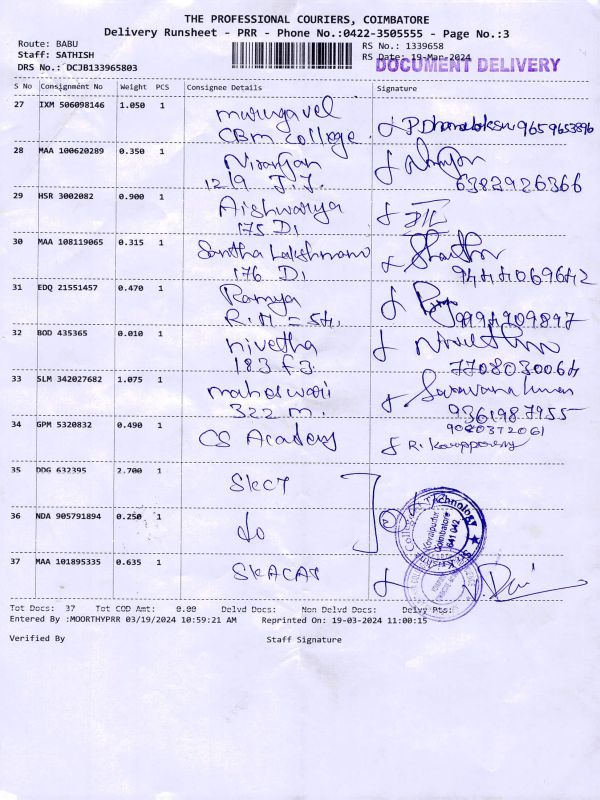 THE PROFESSIONAL COURIERS, COIMBATORE
Delivery Runsheet - PRR - Phone No.:0422-3505555 - Page No.:3
Route: BABU
RS No.: 1339658
Staff: SATHISH
RS Date: 19-Mar-2024
DRS No.: DCJB133965803
DOCUMENT DELIVERY
S No Consignment No Weight PCS Consignee Details Signature
27 IXM 506098146 1.050 1 murugavel
CBM College 9659653896
28 MAA 100620289 0.350 1 Niranjan
12/9 J.J. 6382926366
29 HSR 3002082 0.900 1 Aishwarya
175 D1
30 MAA 108119065 0.315 1 Santha Lakshmami
176 D1 9444069642
31 EDQ 21551457 0.470 1 Ramya
R.M = St. 9994909897
32 BOD 435365 0.010 1 nivetha
183 F3 7708030064
33 SLM 342027682 1.075 1 maheswari Saravana kumar
322 m. 9361987955
34 GPM 5320832 0.490 1 CS Academy 9080372061
R. Karuppasamy
35 DDG 632395 2.700 1 SKCT
36 NDA 905791894 0.250 1 do
Technology
Kovaipudur
Coimbatore
641 042
37 MAA 101895335 0.635 1 SKACAS
Tot Docs: 37 Tot COD Amt: 0.00 Delvd Docs: Non Delvd Docs: Delvy Pts:
Entered By :MOORTHYPRR 03/19/2024 10:59:21 AM Reprinted On: 19-03-2024 11:00:15
Verified By Staff Signature